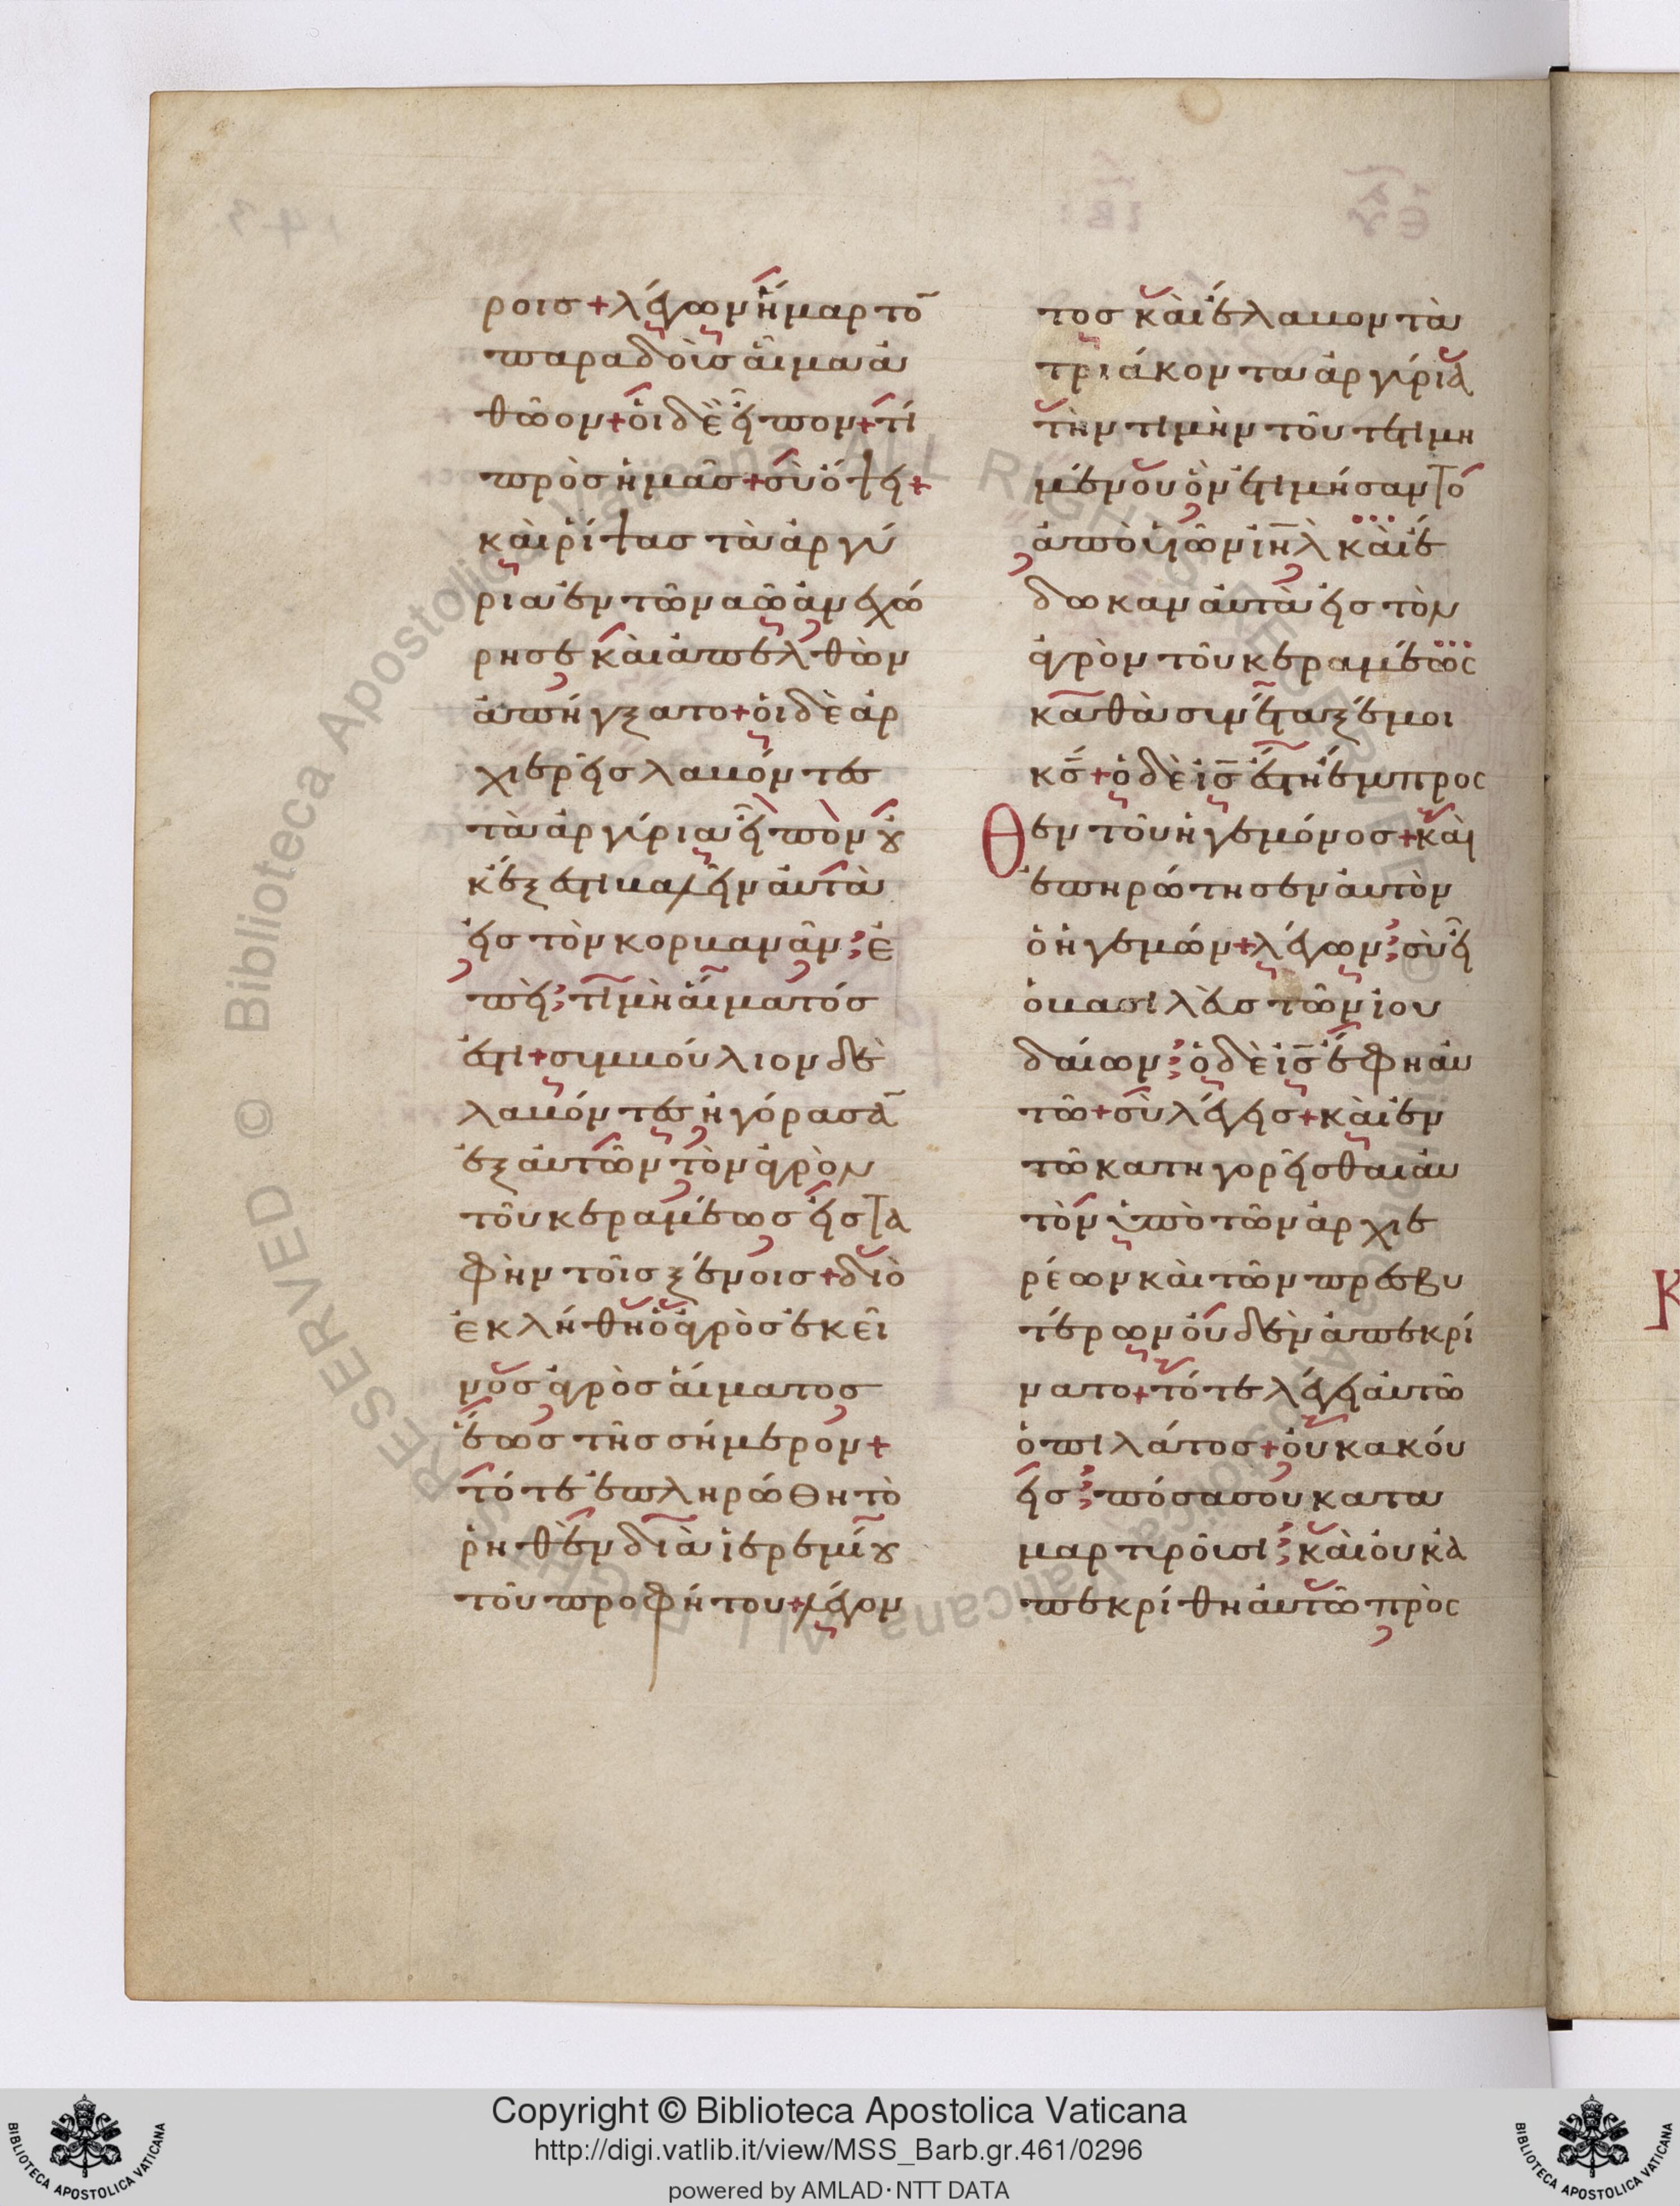 ροισ + λέγων ἥμαρτο̄
παραδοὶσ αἷμα ἀ
θῶον + ὁι δὲ εἶπον + τί
πρὸσ ἡμᾶσ + σὺ ὄψει +
καὶ ρίψασ τὰ ἀργύ
ρια ἐν τῶ ναῶ ἀνεχώ
ρησε καὶ ἀπελθὼν
ἀπήγξατο + ὁι δὲ ἀρ
χιερεῖσ λαβόντεσ
τὰ ἀργίρια εἶπὸν ὀυ
κ ἔξεστι βαλεῖν ἀυτὰ
εἰσ τὸν κορβανᾶν ; ἐ
πεὶ ; τιμὴ ἅιματόσ
ἐστι + σιμβούλιον δὲ
λαβόντεσ ἠγόρασᾱ
ἐξ ἀυτῶν τὸν ἀγρὸν
τοῦ κεραμέωσ εἰσ τα
φὴν τοῖσ ξένοισ + διὸ
ἐκλήθη ὁ ἀγρὸσ ἐκεῖ
νοσ ἀγρὸσ ἅιματοσ
ἕωσ τῆσ σήμερον +
τότε ἐπληρώθη τὸ
ῥηθὲν διὰ ἱερεμίου
τοῦ προφήτου + λέγον
τοσ καὶ ἔλαβον τὰ
τριάκοντα ἀργίρια
τὴν τιμὴν τοῦ τετιμη
μένου ὃν ἐτιμήσαντο
ἀπὸ ὑιῶν ιη̄λ καὶ ἔ
δωκαν ἀυτὰ εἰσ τὸν
ἀγρὸν τοῦ κεραμέωσ
καθὰ σινέταξέ μοι
κ̄σ + ὁ δὲ ῑσ ἔστη ἔμπροσ
θεν τοῦ ἡγεμόνοσ + καὶ
ἐπηρώτησεν ἀυτὸν
ὁ ἡγεμών + λέγων ; σὺ εἶ
ὁ βασιλεὺσ τῶν ἰου
δαίων ; ὁ δὲ ῑσ ἔφη ἀυ
τῶ + σὺ λέγεισ + καὶ ἐν
τῶ κατηγορεῖσθαι ἀυ
τὸν ὑπὸ τῶν ἀρχιε
ρέων καὶ τῶν πρεσβυ
τέρων ὀυδὲν ἀπεκρί
νατο + τότε λέγει ἀυτῶ
ὁ πιλάτοσ + ὀυκ ακόυ
εισ ; πόσα σου κατα
μαρτιροῖσι ; καὶ ὀυκ ἀ
πεκρίθη ἀυτῶ πρὸσ
Copyright © Biblioteca Apostolica Vaticana
http://digi.vatlib.it/view/MSS_Barb.gr.461/0296
powered by AMLAD·NTT DATA